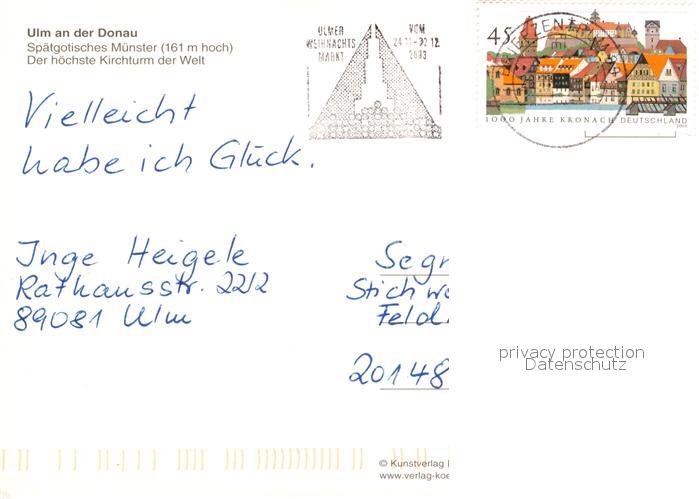 Ulm an der Donau
Spätgotisches Münster (161 m hoch)
Der höchste Kirchturm der Welt
ULMER VOM
WEIHNACHTS
MARKT 2003
45
1000 JAHRE KRONACH DEUTSCHLAND
Vielleicht
habe ich Glück.
Inge Heigele
Rathausstr. 22/2
89081 Ulm
Segr
Stichwo
Feld
20148
privacy protection
Datenschutz
© Kunstverlag
www.verlag-koe